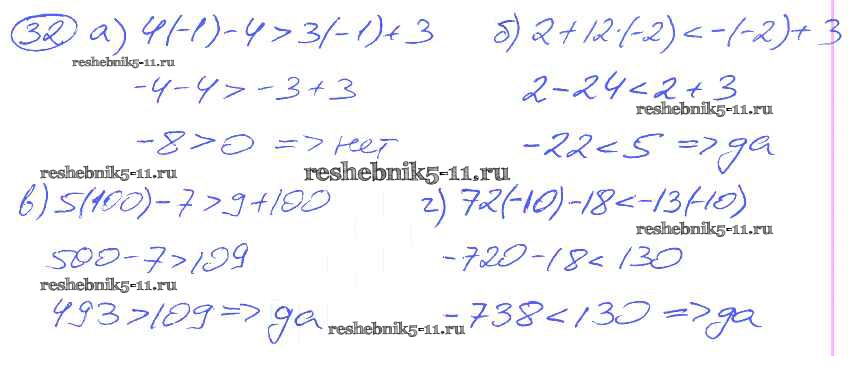 32 а) 4(-1)-4>3(-1)+3 б) 2+12·(-2)<-(-2)+3
reshebnik5-11.ru
-4-4>-3+3 2-24<2+3
reshebnik5-11.ru
-8>0 => нет -22<5 => да
reshebnik5-11.ru reshebnik5-11.ru
в) 5(100)-7>9+100 г) 72(-10)-18<-13(-10)
reshebnik5-11.ru
500-7>109 -720-18<130
reshebnik5-11.ru
493>109 => да -738<130 => да
reshebnik5-11.ru